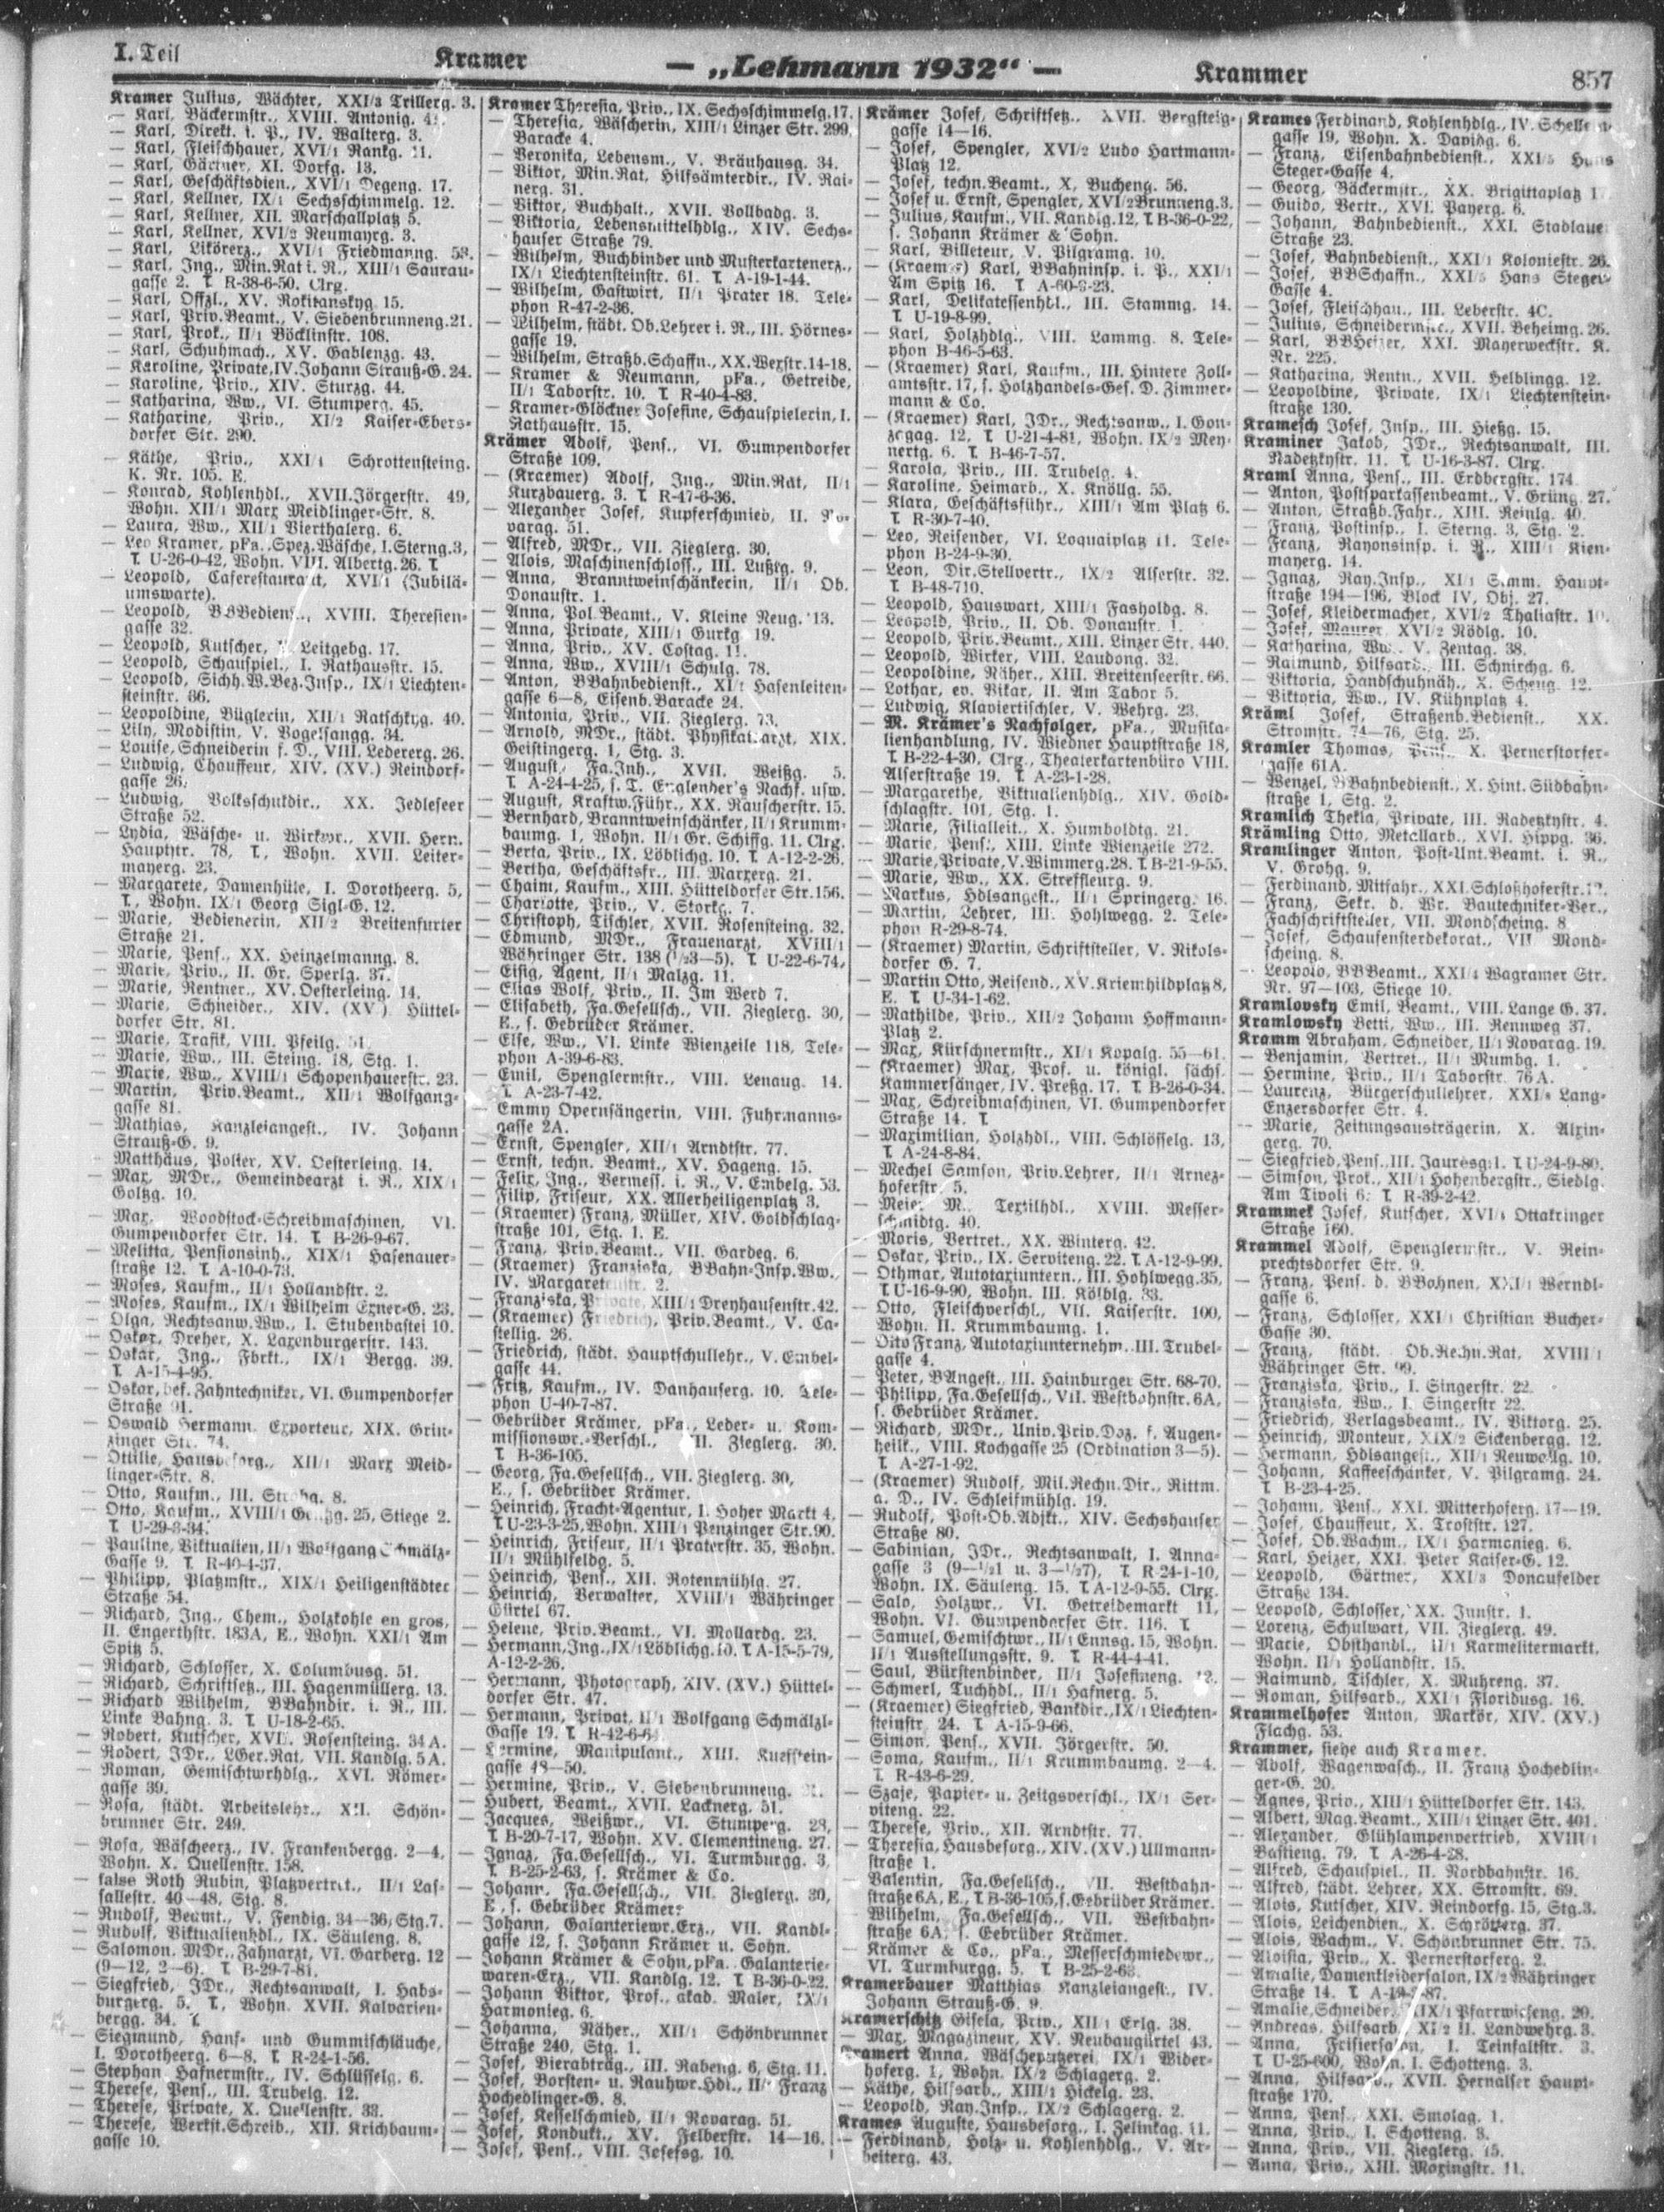 I. Teil
Kramer
— „Lehmann 1932“ —
Krammer
857
Kramer Julius, Wächter, XXI/3 Trillerg. 3.
— Karl, Bäckermstr., XVIII. Antonig.
— Karl, Direkt. i. P., IV. Walterg. 3.
— Karl, Fleischhauer, XVI/1 Rankg. 11.
— Karl, Gärtner, XI. Dorfg. 13.
— Karl, Geschäftsdien., XVI/1 Degeng. 17.
— Karl, Kellner, IX/1 Sechsschimmelg. 12.
— Karl, Kellner, XII. Marschallplatz 5.
— Karl, Kellner, XVI/2 Neumayrg. 3.
— Karl, Likörerz., XVI/1 Friedmanng. 53.
— Karl, Ing., Min.Rat i. R., XIII/1 Saurau-
gasse 2. T. R-38-6-50. Clrg.
— Karl, Offzl., XV. Rokitanskyg. 15.
— Karl, Priv.Beamt., V. Siebenbrunneng. 21.
— Karl, Prok., II/1 Böcklinstr. 108.
— Karl, Schuhmach., XV. Gablenzg. 43.
— Karoline, Private, IV. Johann Strauß-G. 24.
— Karoline, Priv., XIV. Sturzg. 44.
— Katharina, Ww., VI. Stumperg. 45.
— Katharine, Priv., XI/2 Kaiser-Ebers-
dorfer Str. 290.
— Käthe, Priv., XXI/4 Schrottensteing.
K. Nr. 105. E.
— Konrad, Kohlenhdl., XVII. Jörgerstr. 49,
Wohn. XII/1 Marx Meidlinger-Str. 8.
— Laura, Ww., XII/1 Vierthalerg. 6.
— Leo Kramer, pFa., Spez.Wäsche, I. Sterng. 3,
T. U-26-0-42, Wohn. VIII. Albertg. 26. T.
— Leopold, Caferestaurant, XVI/1 (Jubilä-
umswarte).
— Leopold, BBBedienst., XVIII. Theresien-
gasse 32.
— Leopold, Kutscher, V. Leitgebg. 17.
— Leopold, Schauspiel., I. Rathausstr. 15.
— Leopold, Sichh.W.Bez.Insp., IX/1 Liechten-
steinstr. 66.
— Leopoldine, Büglerin, XII/1 Ratschkyg. 40.
— Lily, Modistin, V. Vogelsangg. 34.
— Louise, Schneiderin f. D., VIII. Ledererg. 26.
— Ludwig, Chauffeur, XIV. (XV.) Reindorf-
gasse 26.
— Ludwig, Volksschuldir., XX. Jedleseer
Straße 52.
— Lydia, Wäsche- u. Wirkwr., XVII. Hern.
Hauptstr. 78, T., Wohn. XVII. Leiter-
mayerg. 23.
— Margarete, Damenhüte, I. Dorotheerg. 5,
T., Wohn. IX/1 Georg Sigl-G. 12.
— Marie, Bedienerin, XII/2 Breitenfurter
Straße 21.
— Marie, Pens., XX. Heinzelmanng. 8.
— Marie, Priv., II. Gr. Sperlg. 37.
— Marie, Rentner., XV. Oesterleing. 14.
— Marie, Schneider., XIV. (XV.) Hüttel-
dorfer Str. 81.
— Marie, Trafik, VIII. Pfeilg. 51.
— Marie, Ww., III. Steing. 18, Stg. 1.
— Marie, Ww., XVIII/1 Schopenhauerstr. 23.
— Martin, Priv.Beamt., XII/1 Wolfgang-
gasse 81.
— Mathias, Kanzleiangest., IV. Johann
Strauß-G. 9.
— Matthäus, Polier, XV. Oesterleing. 14.
— Max, MDr., Gemeindearzt i. R., XIX/1
Goltzg. 10.
— Max, Woodstock-Schreibmaschinen, VI.
Gumpendorfer Str. 14. T. B-26-9-67.
— Melitta, Pensionsinh., XIX/1 Hasenauer-
straße 12. T. A-10-0-73.
— Moses, Kaufm., II/1 Hollandstr. 2.
— Moses, Kaufm., IX/1 Wilhelm Exner-G. 23.
— Olga, Rechtsanw.Ww., I. Stubenbastei 10.
— Oskar, Dreher, X. Laxenburgerstr. 143.
— Oskar, Ing., Fbrkt., IX/1 Bergg. 39.
T. A-15-4-95.
— Oskar, bef. Zahntechniker, VI. Gumpendorfer
Straße 91.
— Oswald Hermann, Exporteur, XIX. Grin-
zinger Str. 74.
— Ottilie, Hausbesorg., XII/1 Marx Meid-
linger-Str. 8.
— Otto, Kaufm., III. 8.
— Otto, Kaufm., XVIII/1 25, Stiege 2.
T. U-29-3-34.
— Pauline, Viktualien, II/1 Wolfgang Schmälz-
Gasse 9. T. R-40-4-37.
— Philipp, Platzmstr., XIX/1 Heiligenstädter
Straße 54.
— Richard, Ing., Chem., Holzkohle en gros,
II. Engerthstr. 183A, E., Wohn. XXI/1 Am
Spitz 5.
— Richard, Schlosser, X. Columbusg. 51.
— Richard, Schriftsetz., III. Hagenmüllerg. 13.
— Richard Wilhelm, BBahndir. i. R., III.
Linke Bahng. 3. T. U-18-2-65.
— Robert, Kutscher, XVII. Rosensteing. 34A.
— Robert, JDr., LGer.Rat, VII. Kandlg. 5A.
— Roman, Gemischtwrhdlg., XVI. Römer-
gasse 39.
— Rosa, städt. Arbeitslehr., XII. Schön-
brunner Str. 249.
— Rosa, Wäscheerz., IV. Frankenbergg. 2—4,
Wohn. X. Quellenstr. 158.
— false Roth Rubin, Platzvertret., II/1 Las-
sallestr. 40—48, Stg. 8.
— Rudolf, Beamt., V. Fendig. 34—36, Stg. 7.
— Rudolf, Viktualienhdl., IX. Säuleng. 8.
— Salomon, MDr., Zahnarzt, VI. Garberg. 12
(9—12, 2—6). T. B-29-7-81.
— Siegfried, JDr., Rechtsanwalt, I. Habs-
burgerg. 5, T., Wohn. XVII. Kalvarien-
bergg. 34. T.
— Siegmund, Hanf- und Gummischläuche,
I. Dorotheerg. 6—8. T. R-24-1-56.
— Stephan, Hafnermstr., IV. Schlüsselg. 6.
— Therese, Pens., III. Trubelg. 12.
— Therese, Private, X. Quellenstr. 33.
— Therese, Werkst.Schreib., XII. Krichbaum-
gasse 10.
Kramer Theresia, Priv., IX. Sechsschimmelg. 17.
— Theresia, Wäscherin, XIII/1 Linzer Str. 299,
Baracke 4.
— Veronika, Lebensm., V. Bräuhausg. 34.
— Viktor, Min.Rat, Hilfsämterdir., IV. Rai-
nerg. 31.
— Viktor, Buchhalt., XVII. Vollbadg. 3.
— Viktoria, Lebensmittelhdlg., XIV. Sechs-
hauser Straße 79.
— Wilhelm, Buchbinder und Musterkartenerz.,
IX/1 Liechtensteinstr. 61. T. A-19-1-44.
— Wilhelm, Gastwirt, II/1 Prater 18. Tele-
phon R-47-2-36.
— Wilhelm, städt. Ob.Lehrer i. R., III. Hörnes-
gasse 19.
— Wilhelm, Straßb.Schaffn., XX. Wexstr. 14-18.
— Kramer & Neumann, pFa., Getreide,
II/1 Taborstr. 10. T. R-40-4-83.
— Kramer-Glöckner Josefine, Schauspielerin, I.
Rathausstr. 15.
Krämer Adolf, Pens., VI. Gumpendorfer
Straße 109.
— (Kraemer) Adolf, Ing., Min.Rat, II/1
Kurzbauerg. 3. T. R-47-6-36.
— Alexander Josef, Kupferschmied, II. No-
varag. 51.
— Alfred, MDr., VII. Zieglerg. 30.
— Alois, Maschinenschloss., III. Lußtg. 9.
— Anna, Branntweinschänkerin, II/1 Ob.
Donaustr. 1.
— Anna, Pol.Beamt., V. Kleine Neug. 13.
— Anna, Private, XIII/1 Gurkg. 19.
— Anna, Priv., XV. Costag. 11.
— Anna, Ww., XVIII/1 Schulg. 78.
— Anton, BBahnbedienst., XI/1 Hasenleiten-
gasse 6—8, Eisenb.Baracke 24.
— Antonia, Priv., VII. Zieglerg. 73.
— Arnold, MDr., städt. Physikatsarzt, XIX.
Geistingerg. 1, Stg. 3.
— August, Fa.Inh., XVII. Weißg. 5.
T. A-24-4-25, s. T. Englender's Nachf. usw.
— August, Kraftw.Führ., XX. Rauscherstr. 15.
— Bernhard, Branntweinschänker, II/1 Krumm-
baumg. 1, Wohn. II/1 Gr. Schiffg. 11. Clrg.
— Berta, Priv., IX. Löblichg. 10. T. A-12-2-26.
— Bertha, Geschäftsfr., III. Marxerg. 21.
— Chaim, Kaufm., XIII. Hütteldorfer Str. 156.
— Charlotte, Priv., V. Storkg. 7.
— Christoph, Tischler, XVII. Rosensteing. 32.
— Edmund, MDr., Frauenarzt, XVIII/1
Währinger Str. 138 (1/23—5). T. U-22-6-74.
— Eisig, Agent, II/1 Malzg. 11.
— Elias Wolf, Priv., II. Im Werd 7.
— Elisabeth, Fa.Gesellsch., VII. Zieglerg. 30,
E., s. Gebrüder Krämer.
— Else, Ww., VI. Linke Wienzeile 118, Tele-
phon A-39-6-83.
— Emil, Spenglermstr., VIII. Lenaug. 14.
T. A-23-7-42.
— Emmy Opernsängerin, VIII. Fuhrmanns-
gasse 2A.
— Ernst, Spengler, XII/1 Arndtstr. 77.
— Ernst, techn. Beamt., XV. Hageng. 15.
— Felix, Ing., Vermess. i. R., V. Embelg. 53.
— Filip, Friseur, XX. Allerheiligenplatz 3.
— (Kraemer) Franz, Müller, XIV. Goldschlag-
straße 101, Stg. 1. E.
— Franz, Priv.Beamt., VII. Gardeg. 6.
— (Kraemer) Franziska, BBahn-Insp.Ww.,
IV. Margaretenstr. 2.
— Franziska, Private, XIII/1 Dreyhausenstr. 42.
— (Kraemer) Friedrich, Priv.Beamt., V. Ca-
stellig. 26.
— Friedrich, städt. Hauptschullehr., V. Embel-
gasse 44.
— Fritz, Kaufm., IV. Danhauserg. 10. Tele-
phon U-40-7-87.
— Gebrüder Krämer, pFa., Leder- u. Kom-
missionswr.-Verschl., VII. Zieglerg. 30.
T. B-36-105.
— Georg, Fa.Gesellsch., VII. Zieglerg. 30,
E., s. Gebrüder Krämer.
— Heinrich, Fracht-Agentur, I. Hoher Markt 4,
T. U-23-3-25, Wohn. XIII/1 Penzinger Str. 90.
— Heinrich, Friseur, II/1 Praterstr. 35, Wohn.
II/1 Mühlfeldg. 5.
— Heinrich, Pens., XII. Rotenmühlg. 27.
— Heinrich, Verwalter, XVIII/1 Währinger
Gürtel 67.
— Helene, Priv.Beamt., VI. Mollardg. 23.
— Hermann, Ing., IX/1 Löblichg. 10. T. A-15-5-79,
A-12-2-26.
— Hermann, Photograph, XIV. (XV.) Hüttel-
dorfer Str. 47.
— Hermann, Privat, II/1 Wolfgang Schmälzl-
Gasse 19. T. R-42-6-64.
— Hermine, Manipulant., XIII. Kuefstein-
gasse 48—50.
— Hermine, Priv., V. Siebenbrunneng.
— Hubert, Beamt., XVII. Lacknerg. 51.
— Jacques, Weißwr., VI. Stumperg. 28,
T. B-20-7-17, Wohn. XV. Clementineng. 27.
— Ignaz, Fa.Gesellsch., VI. Turmburgg. 3,
T. B-25-2-63, s. Krämer & Co.
— Johann, Fa.Gesellsch., VII. Zieglerg. 30,
E., s. Gebrüder Krämer.
— Johann, Galanteriewr.Erz., VII. Kandl-
gasse 12, s. Johann Krämer u. Sohn.
— Johann Krämer & Sohn, pFa., Galanterie-
waren-Erz., VII. Kandlg. 12. T. B-36-0-22.
— Johann Viktor, Prof., akad. Maler, IX/1
Harmonieg. 6.
— Johanna, Näher., XII/1 Schönbrunner
Straße 240, Stg. 1.
— Josef, Bierabträg., III. Rabeng. 6, Stg. 11.
— Josef, Borsten- u. Rauhwr.Hdl., II/1 Franz
Hochedlinger-G. 8.
— Josef, Kesselschmied, II/1 Novarag. 51.
— Josef, Kondukt., XV. Felberstr. 14—16.
— Josef, Pens., VIII. Josefsg. 10.
Krämer Josef, Schriftsetz., XVII. Bergsteig-
gasse 14—16.
— Josef, Spengler, XVI/2 Ludo Hartmann-
Platz 12.
— Josef, techn.Beamt., X, Bucheng. 56.
— Josef u. Ernst, Spengler, XVI/2 Brunneng. 3.
— Julius, Kaufm., VII. Kandlg. 12, T. B-36-0-22,
s. Johann Krämer & Sohn.
— Karl, Billeteur, V. Pilgramg. 10.
— (Kraemer) Karl, BBahninsp. i. P., XXI/1
Am Spitz 16. T. A-60-3-23.
— Karl, Delikatessenhdl., III. Stammg. 14.
T. U-19-8-99.
— Karl, Holzhdlg., VIII. Lammg. 8. Tele-
phon B-46-5-63.
— (Kraemer) Karl, Kaufm., III. Hintere Zoll-
amtsstr. 17, s. Holzhandels-Ges. D. Zimmer-
mann & Co.
— (Kraemer) Karl, JDr., Rechtsanw., I. Gon-
zagag. 12, T. U-21-4-81, Wohn. IX/2 Mey-
nertg. 6. T. B-46-7-57.
— Karola, Priv., III. Trubelg. 4.
— Karoline, Heimarb., X. Knöllg. 55.
— Klara, Geschäftsführ., XIII/1 Am Platz 6.
T. R-30-7-40.
— Leo, Reisender, VI. Loquaiplatz 11. Tele-
phon B-24-9-30.
— Leon, Dir.Stellvertr., IX/2 Alserstr. 32.
T. B-48-710.
— Leopold, Hauswart, XIII/1 Fasholdg. 8.
— Leopold, Priv., II. Ob. Donaustr. 1.
— Leopold, Priv.Beamt., XIII. Linzer Str. 440.
— Leopold, Wirker, VIII. Laudong. 32.
— Leopoldine, Näher., XIII. Breitenseerstr. 66.
— Lothar, ev. Vikar, II. Am Tabor 5.
— Ludwig, Klaviertischler, V. Wehrg. 23.
— M. Krämer's Nachfolger, pFa., Musika-
lienhandlung, IV. Wiedner Hauptstraße 18,
T. B-22-4-30, Clrg., Theaterkartenbüro VIII.
Alserstraße 19. T. A-23-1-28.
— Margarethe, Viktualienhdlg., XIV. Gold-
schlagstr. 101, Stg. 1.
— Marie, Filialleit., X. Humboldtg. 21.
— Marie, Pens., XIII. Linke Wienzeile 272.
— Marie, Private, V. Wimmerg. 28. T. B-21-9-55.
— Marie, Ww., XX. Streffleurg. 9.
— Markus, Hdlsangest., II/1 Springerg. 16.
— Martin, Lehrer, III. Hohlwegg. 2. Tele-
phon R-29-8-74.
— (Kraemer) Martin, Schriftsteller, V. Nikols-
dorfer G. 7.
— Martin Otto, Reisend., XV. Kriemhildplatz 8,
E. T. U-34-1-62.
— Mathilde, Priv., XII/2 Johann Hoffmann-
Platz 2.
— Max, Kürschnermstr., XI/1 Kopalg. 55—61.
— (Kraemer) Max, Prof. u. königl. sächs.
Kammersänger, IV. Preßg. 17. T. B-26-0-34.
— Max, Schreibmaschinen, VI. Gumpendorfer
Straße 14. T.
— Maximilian, Holzhdl., VIII. Schlösselg. 13,
T. A-24-8-84.
— Mechel Samson, Priv.Lehrer, II/1 Arnez-
hoferstr. 5.
— Meier M., Textilhdl., XVIII. Messer-
schmidtg. 40.
— Moris, Vertret., XX. Winterg. 42.
— Oskar, Priv., IX. Serviteng. 22. T. A-12-9-99.
— Othmar, Autotaxiuntern., III. Hohlwegg. 35,
T. U-16-9-90, Wohn. III. Kölblg. 33.
— Otto, Fleischverschl., VII. Kaiserstr. 100,
Wohn. II. Krummbaumg. 1.
— Otto Franz, Autotaxiunternehm., III. Trubel-
gasse 4.
— Peter, BAngest., III. Hainburger Str. 68-70.
— Philipp, Fa.Gesellsch., VII. Westbahnstr. 6A,
s. Gebrüder Krämer.
— Richard, MDr., Univ.Priv.Doz. f. Augen-
heilk., VIII. Kochgasse 25 (Ordination 3—5).
T. A-27-1-92.
— (Kraemer) Rudolf, Mil.Rechn.Dir., Rittm.
a. D., IV. Schleifmühlg. 19.
— Rudolf, Post-Ob.Adjkt., XIV. Sechshauser
Straße 80.
— Sabinian, JDr., Rechtsanwalt, I. Anna-
gasse 3 (9—1/21 u. 3—1/27), T. R-24-1-10,
Wohn. IX. Säuleng. 15. T. A-12-9-55. Clrg.
— Salo, Holzwr., VI. Getreidemarkt 11,
Wohn. VI. Gumpendorfer Str. 116. T.
— Samuel, Gemischtwr., II/1 Ennsg. 15, Wohn.
II/1 Ausstellungsstr. 9. T. R-44-4-41.
— Saul, Bürstenbinder, II/1 Josefineng. 12.
— Schmerl, Tuchhdl., II/1 Hafnerg. 5.
— (Kraemer) Siegfried, Bankdir., IX/1 Liechten-
steinstr. 24. T. A-15-9-66.
— Simon, Pens., XVII. Jörgerstr. 50.
— Soma, Kaufm., II/1 Krummbaumg. 2—4.
T. R-43-6-29.
— Szaje, Papier- u. Zeitgsverschl., IX/1 Ser-
viteng. 22.
— Therese, Priv., XII. Arndtstr. 77.
— Theresia, Hausbesorg., XIV. (XV.) Ullmann-
straße 1.
— Valentin, Fa.Gesellsch., VII. Westbahn-
straße 6A, E., T. B-36-105, s. Gebrüder Krämer.
— Wilhelm, Fa.Gesellsch., VII. Westbahn-
straße 6A, s. Gebrüder Krämer.
— Krämer & Co., pFa., Messerschmiedewr.,
VI. Turmburgg. 5. T. B-25-2-63.
Kramerbauer Matthias, Kanzleiangest., IV.
Johann Strauß-G. 9.
Kramerschitz Gisela, Priv., XII/1 Erlg. 38.
— Max, Magazineur, XV. Neubaugürtel 43.
Kramert Anna, Wäscheputzerei, IX/1 Wider-
hoferg. 1, Wohn. IX/2 Schlagerg. 2.
— Käthe, Hilfsarb., XIII/1 Hickelg. 23.
— Leopold, Ray.Insp., IX/2 Schlagerg. 2.
Krames Auguste, Hausbesorg., I. Zelinkag. 11.
— Ferdinand, Holz- u. Kohlenhdlg., V. Ar-
beiterg. 43.
Krames Ferdinand, Kohlenhdlg., IV. Schellein-
gasse 19, Wohn. X. Davidg. 6.
— Franz, Eisenbahnbedienst., XXI/5 Hans
Steger-Gasse 4.
— Georg, Bäckermstr., XX. Brigittaplatz 17
— Guido, Vertr., XVI. Payerg. 6.
— Johann, Bahnbedienst., XXI. Stadlauer
Straße 23.
— Josef, Bahnbedienst., XXI/1 Koloniestr. 26.
— Josef, BBSchaffn., XXI/5 Hans Steger-
Gasse 4.
— Josef, Fleischhau., III. Leberstr. 4C.
— Julius, Schneidermstr., XVII. Beheimg. 26.
— Karl, BBHeizer, XXI. Mayerweckstr. K.
Nr. 225.
— Katharina, Rentn., XVII. Helblingg. 12.
— Leopoldine, Private, IX/1 Liechtenstein-
straße 130.
Kramesch Josef, Insp., III. Hießg. 15.
Kraminer Jakob, JDr., Rechtsanwalt, III.
Radetzkystr. 11. T. U-16-3-87. Clrg.
Kraml Anna, Pens., III. Erdbergstr. 174.
— Anton, Postsparkassenbeamt., V. Grüng. 27.
— Anton, Straßb.Fahr., XIII. Reinlg. 40.
— Franz, Postinsp., I. Sterng. 3, Stg. 2.
— Franz, Rayonsinsp. i. R., XIII/1 Kien-
mayerg. 14.
— Ignaz, Ray.Insp., XI/1 Simm. Haupt-
straße 194—196, Block IV, Obj. 27.
— Josef, Kleidermacher, XVI/2 Thaliastr. 10.
— Josef, Maurer, XVI/2 Nödlg. 10.
— Katharina, Ww., V. Zentag. 38.
— Raimund, Hilfsarb., III. Schnirchg. 6.
— Viktoria, Handschuhnäh., X. Scheug. 12.
— Viktoria, Ww., IV. Kühnplatz 4.
Kräml Josef, Straßenb.Bedienst., XX.
Stromstr. 74—76, Stg. 25.
Kramler Thomas, Pens., X. Pernerstorfer-
gasse 61A.
— Wenzel, BBahnbedienst., X. Hint. Südbahn-
straße 1, Stg. 2.
Kramlich Thekla, Private, III. Radetzkystr. 4.
Krämling Otto, Metallarb., XVI. Hippg. 36.
Kramlinger Anton, Post-Unt.Beamt. i. R.,
V. Grohg. 9.
— Ferdinand, Mitfahr., XXI. Schloßhoferstr.
— Franz, Sekr. d. Wr. Bautechniker-Ver.,
Fachschriftsteller, VII. Mondscheing. 8.
— Josef, Schaufensterdekorat., VII Mond-
scheing. 8.
— Leopold, BBBeamt., XXI/4 Wagramer Str.
Nr. 97—103, Stiege 10.
Kramlovsky Emil, Beamt., VIII. Lange G. 37.
Kramlowsky Betti, Ww., III. Rennweg 37.
Kramm Abraham, Schneider, II/1 Novarag. 19.
— Benjamin, Vertret., II/1 Mumbg. 1.
— Hermine, Priv., II/1 Taborstr. 76A.
— Laurenz, Bürgerschullehrer, XXI/8 Lang-
Enzersdorfer Str. 4.
— Marie, Zeitungsausträgerin, X. Alxin-
gerg. 70.
— Siegfried, Pens., III. Jauresg. 1. T. U-24-9-80.
— Simson, Prok., XII/1 Hohenbergstr., Siedlg.
Am Tivoli 6. T. R-39-2-42.
Krammek Josef, Kutscher, XVI/1 Ottakringer
Straße 160.
Krammel Adolf, Spenglermstr., V. Rein-
prechtsdorfer Str. 9.
— Franz, Pens. d. BBahnen, XXI/1 Werndl-
gasse 6.
— Franz, Schlosser, XXI/1 Christian Bucher-
Gasse 30.
— Franz, städt. Ob.Rechn.Rat, XVIII/1
Währinger Str. 99.
— Franziska, Priv., I. Singerstr. 22.
— Franziska, Ww., I. Singerstr 22.
— Friedrich, Verlagsbeamt., IV. Viktorg. 25.
— Heinrich, Monteur, XIX/2 Sickenbergg. 12.
— Hermann, Hdlsangest., XII/1 Neuwallg. 10.
— Johann, Kaffeeschänker, V. Pilgramg. 24.
T. B-23-4-25.
— Johann, Pens., XXI. Mitterhoferg. 17—19.
— Josef, Chauffeur, X. Troststr. 127.
— Josef, Ob.Wachm., IX/1 Harmonieg. 6.
— Karl, Heizer, XXI. Peter Kaiser-G. 12.
— Leopold, Gärtner, XXI/3 Donaufelder
Straße 134.
— Leopold, Schlosser, XX. Innstr. 1.
— Lorenz, Schulwart, VII. Zieglerg. 49.
— Marie, Obsthandl., II/1 Karmelitermarkt,
Wohn. II/1 Hollandstr. 15.
— Raimund, Tischler, X. Muhreng. 37.
— Roman, Hilfsarb., XXI/1 Floridusg. 16.
Krammelhofer Anton, Markör, XIV. (XV.)
Flachg. 53.
Krammer, siehe auch Kramer.
— Adolf, Wagenwasch., II. Franz Hochedlin-
ger-G. 20.
— Agnes, Priv., XIII/1 Hütteldorfer Str. 143.
— Albert, Mag.Beamt., XIII/1 Linzer Str. 401.
— Alexander, Glühlampenvertrieb, XVIII/1
Bastieng. 79. T. A-26-4-28.
— Alfred, Schauspiel., II. Nordbahnstr. 16.
— Alfred, städt. Lehrer, XX. Stromstr. 69.
— Alois, Kutscher, XIV. Reindorfg. 15, Stg. 3.
— Alois, Leichendien., X. Schrötterg. 37.
— Alois, Wachm., V. Schönbrunner Str. 75.
— Aloisia, Priv., X. Pernerstorferg. 2.
— Amalie, Damenkleidersalon, IX/2 Währinger
Straße 14. T.
— Amalie, Schneider., XIX/1 Pfarrwieseng. 20.
— Andreas, Hilfsarb., XI/2 II. Landwehrg. 3.
— Anna, Frisiersalon, I. Teinfaltstr. 3.
T. U-25-600, Wohn. I. Schotteng. 3.
— Anna, Hilfsarb., XVII. Hernalser Haupt-
straße 170.
— Anna, Pens., XXI. Smolag. 1.
— Anna, Priv., I. Schotteng. 3.
— Anna, Priv., VII. Zieglerg. 15.
— Anna, Priv., XIII. Moxingstr. 11.